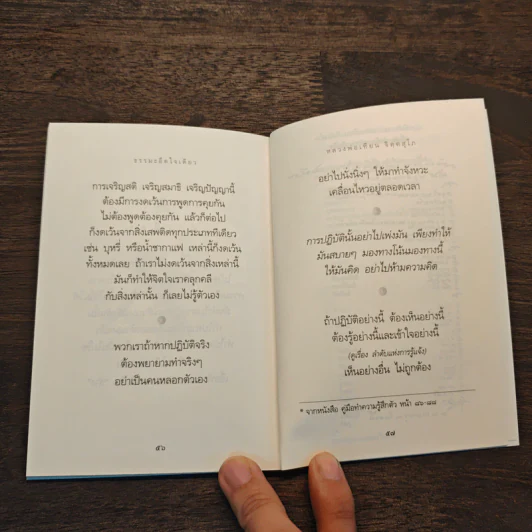 ธรรมะยึดใจเดียว
การเจริญสติ เจริญสมาธิ เจริญปัญญานี้
ต้องมีการงดเว้นการพูดการคุยกัน
ไม่ต้องพูดต้องคุยกัน แล้วก็ต่อไป
ก็งดเว้นจากสิ่งเสพติดทุกประเภททีเดียว
เช่น บุหรี่ หรือน้ำชากาแฟ เหล่านี้ก็งดเว้น
ทั้งหมดเลย ถ้าเราไม่งดเว้นจากสิ่งเหล่านี้
มันก็ทำให้จิตใจเราคลุกคลี
กับสิ่งเหล่านั้น ก็เลยไม่รู้ตัวเอง
พวกเราถ้าหากปฏิบัติจริง
ต้องพยายามทำจริงๆ
อย่าเป็นคนหลอกตัวเอง
๕๖
หลวงพ่อเทียน จิตฺตสุโภ
อย่าไปนั่งนิ่งๆ ให้มาทำจังหวะ
เคลื่อนไหวอยู่ตลอดเวลา
การปฏิบัตินั้นอย่าไปเพ่งมัน เพียงทำให้
มันสบายๆ มองทางโน้นมองทางนี้
ให้มันคิด อย่าไปห้ามความคิด
ถ้าปฏิบัติอย่างนี้ ต้องเห็นอย่างนี้
ต้องรู้อย่างนี้และเข้าใจอย่างนี้
(ดูเรื่อง ลำดับแห่งการรู้แจ้ง)
เห็นอย่างอื่น ไม่ถูกต้อง
* จากหนังสือ คู่มือทำความรู้สึกตัว หน้า ๘๖-๘๘
๕๗